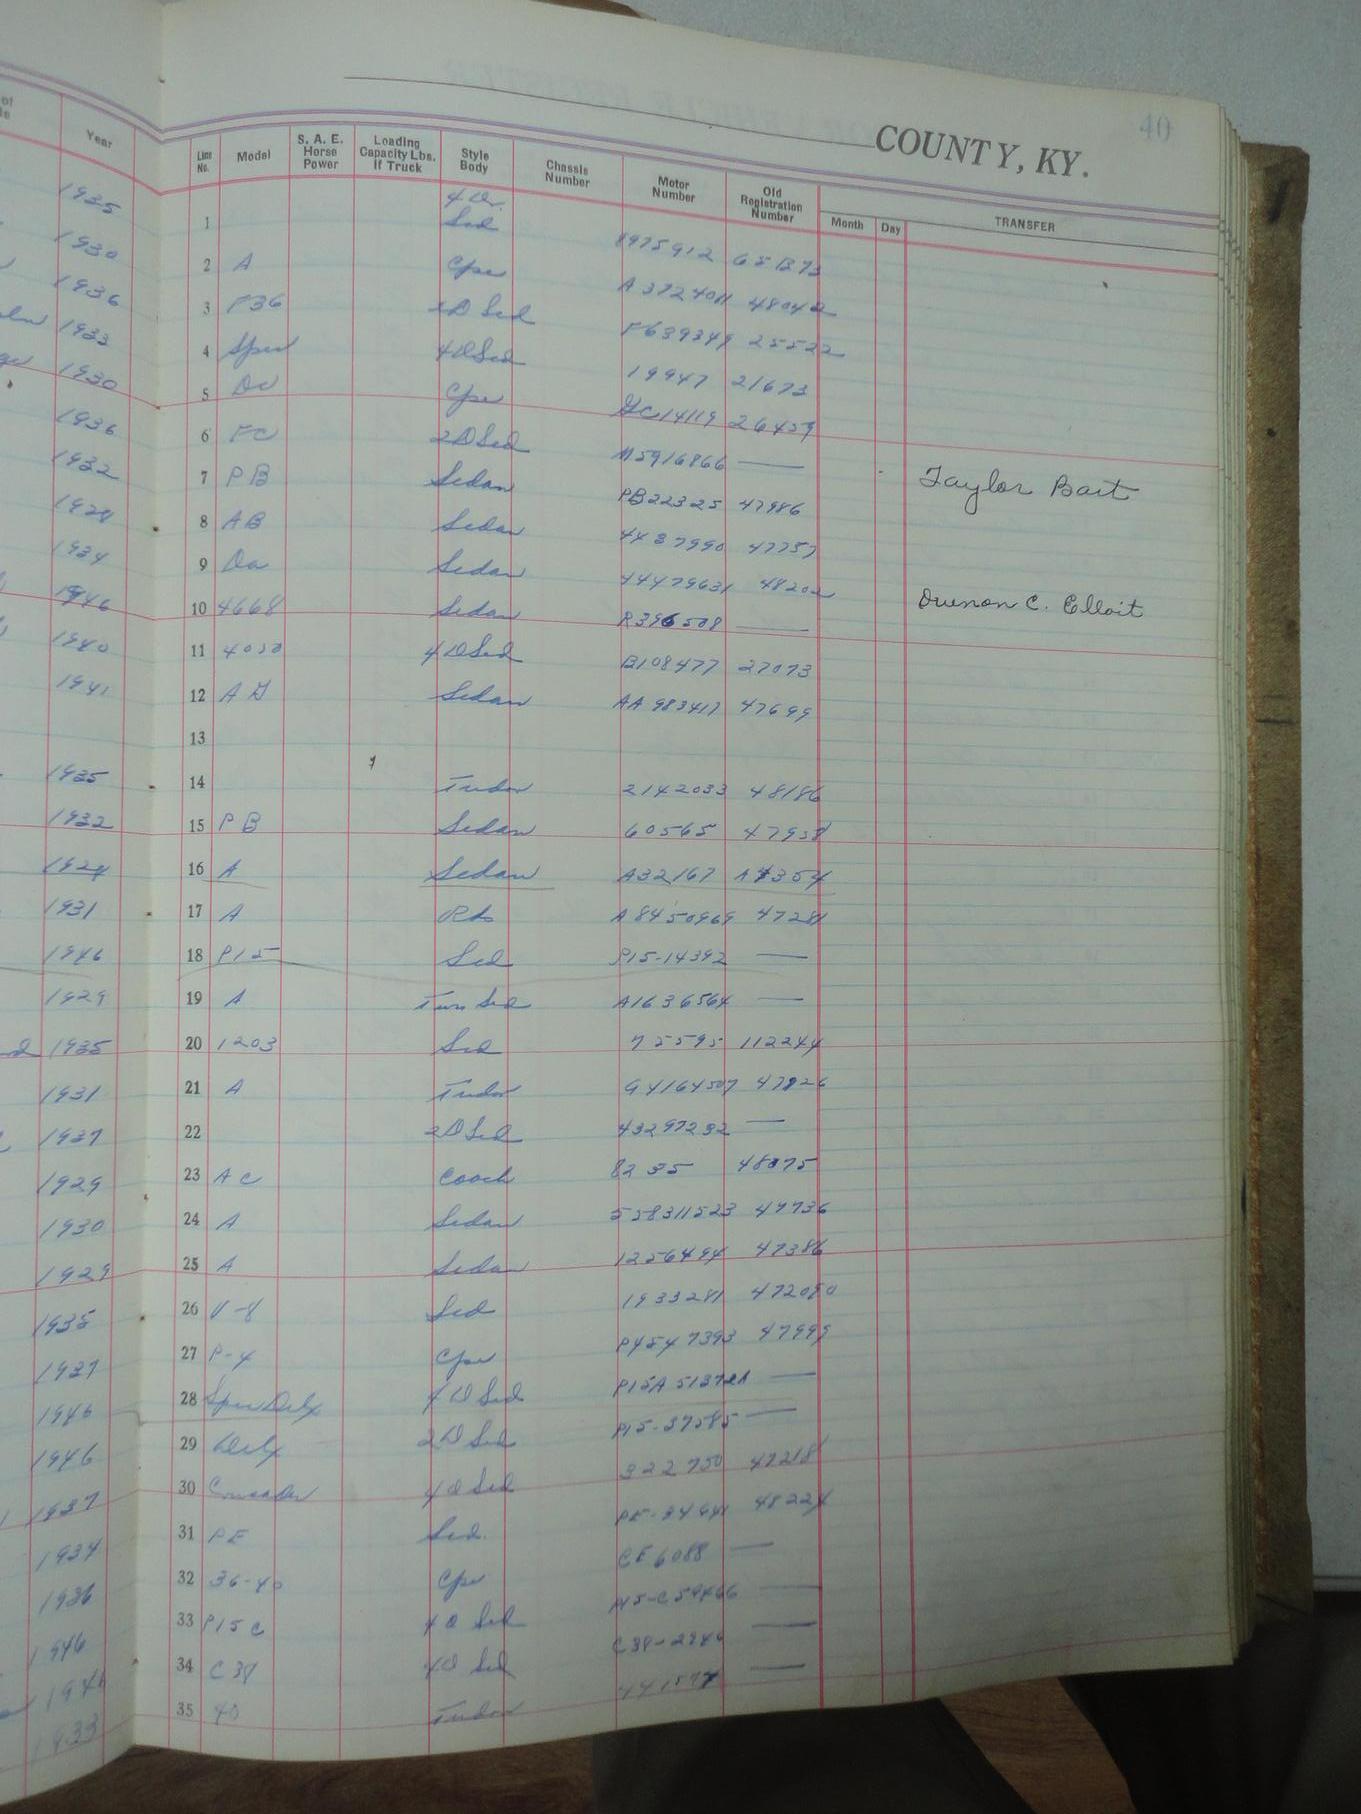 40
COUNTY, KY.
Year
Line No. Model S. A. E. Horse Power Loading Capacity Lbs. If Truck Style Body Chassis Number Motor Number Old Registration Number Month Day TRANSFER
1935 1 4 Dr. Sed 8975912 65B73
1930 2 A Cpe A3724011 48042
1936 3 P36 2D Sed F639349 25522
1933 4 Spec 4D Sed 19947 21673
1930 5 DC Cpe 26459
1936 6 FC 2D Sed M5916866 —
1932 7 PB Sedan PB22325 47986 Taylor Bait
8 AB Sedan 4437990 47757
1934 9 Da Sedan 48202
1946 10 4668 Sedan R396508 — C. Elloit
1940 11 4D Sed B108477 27073
1941 12 Sedan AA983417 47699
13
1935 14 Tudor 2142033 48186
1932 15 PB Sedan 60565 47958
1929 16 A Sedan A32167
1931 17 A A8450969 47281
1946 18 P15 Sed P15-14392 —
1929 19 A Sed A1636564 —
1935 20 1203 Sed 75595 112244
1931 21 A Tudor 47826
1937 22 2D Sed 43297232 —
1929 23 AC Coach 8235 48075
1930 24 A Sedan 558311523 47736
1929 25 A Sedan 1256494 47386
1935 26 V-8 Sed 1933281
1937 27 P-4 Cpe P4547393 47999
1946 28 Spec Delx 4D Sed —
1946 29 Delx 2D Sed P15-37585 —
1937 30 4D Sed 322750 47218
1934 31 PE Sed. 48224
1936 32 36-40 Cpe CE6088 —
1946 33 P15C 4D Sed —
1946 34 C38 4D Sed C38-2846 —
1933 35 40 Tudor —